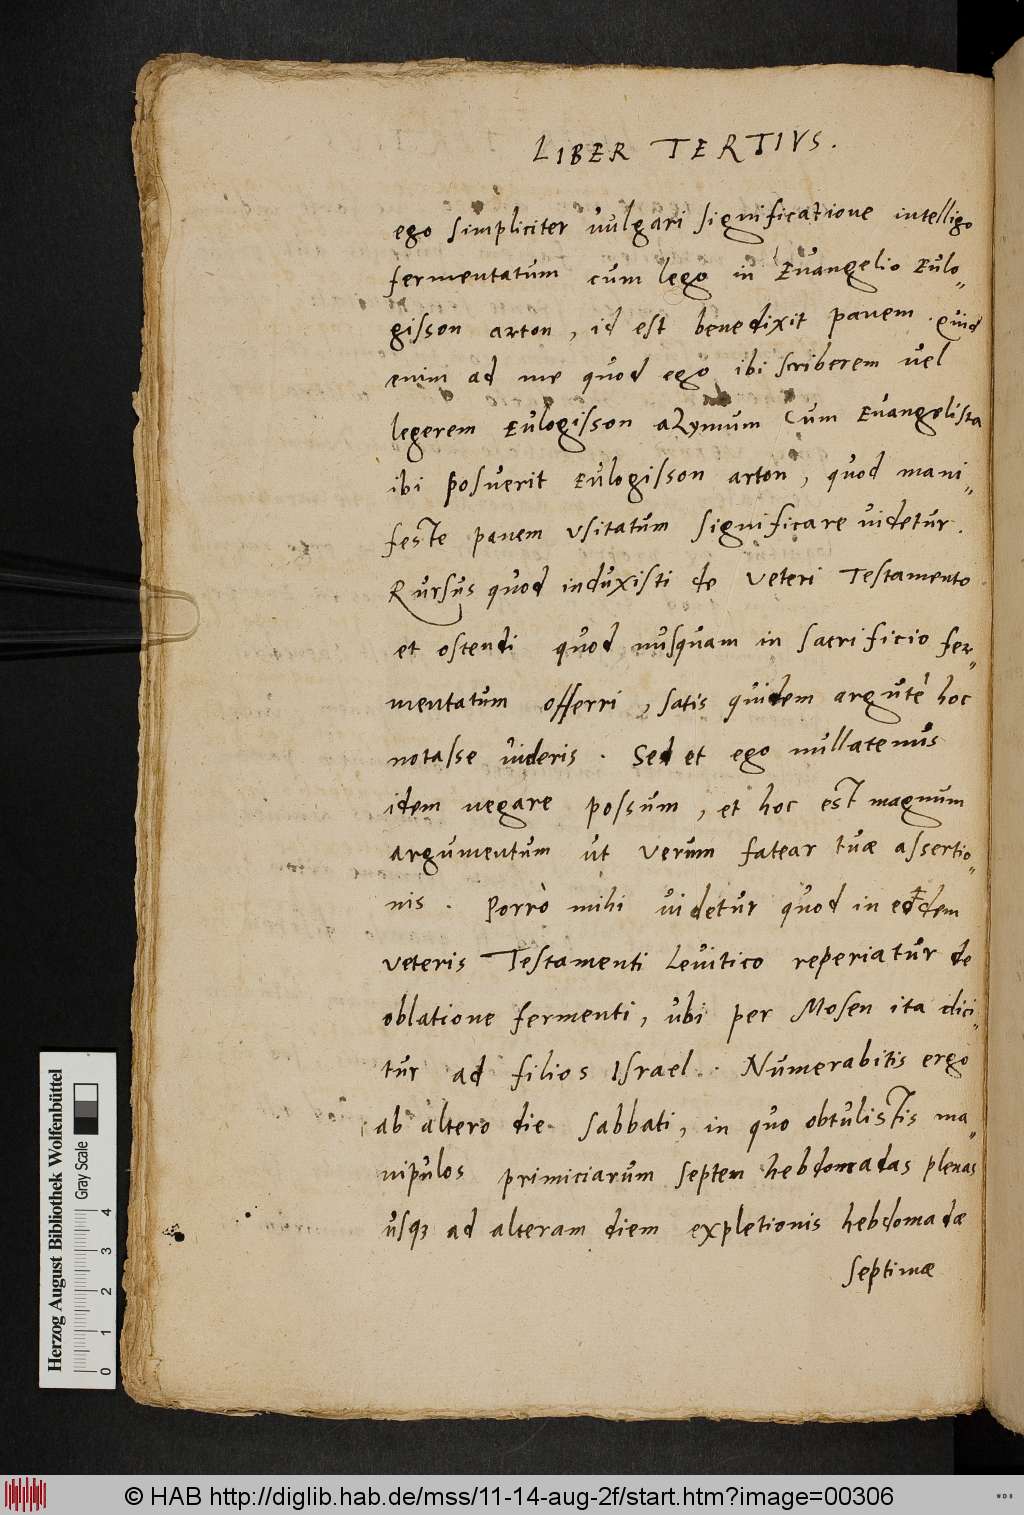 LIBER TERTIVS.
ego simpliciter vulgari significatione intelligo
fermentatum cum lego in Evangelio Eulo„
gisson arton, id est benedixit panem. quid
enim ad me quod ego ibi scriberem vel
legerem Eulogisson aZymum cum Evangelista
ibi posuerit Eulogisson arton, quod mani„
feste panem usitatum significare videtur.
Rursus quod induxisti de Veteri Testamento
et ostendi quod nusquam in sacrificio fer„
mentatum offerri, satis quidem argutè hoc
notasse videris. Sed et ego nullatenus
idem negare possum, et hoc est magnum
argumentum ut verum fatear tuæ assertio„
nis. Porrò mihi videtur quod in eodem
veteris Testamenti Levitico reperiatur de
oblatione fermenti, ubi per Mosen ita dici„
tur ad filios Israel. Numerabitis ergo
ab altero die sabbati, in quo obtulistis ma„
nipulos primiciarum septem hebdomadas plenas
usqꝫ ad alteram diem expletionis hebdomadæ
septimæ
Herzog August Bibliothek Wolfenbüttel
Gray Scale
0 1 2 3 4
© HAB http://diglib.hab.de/mss/11-14-aug-2f/start.htm?image=00306